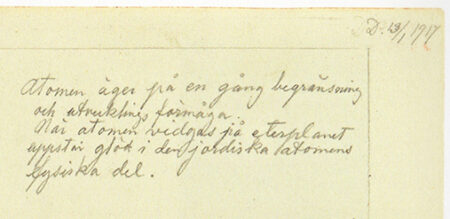 D. 23/1 1917
Atomen äger på en gång begränsning
och utvecklings förmåga.
När atomen vidgas på eterplanet
uppstår glöd i den jordiska atomens
fysiska del.